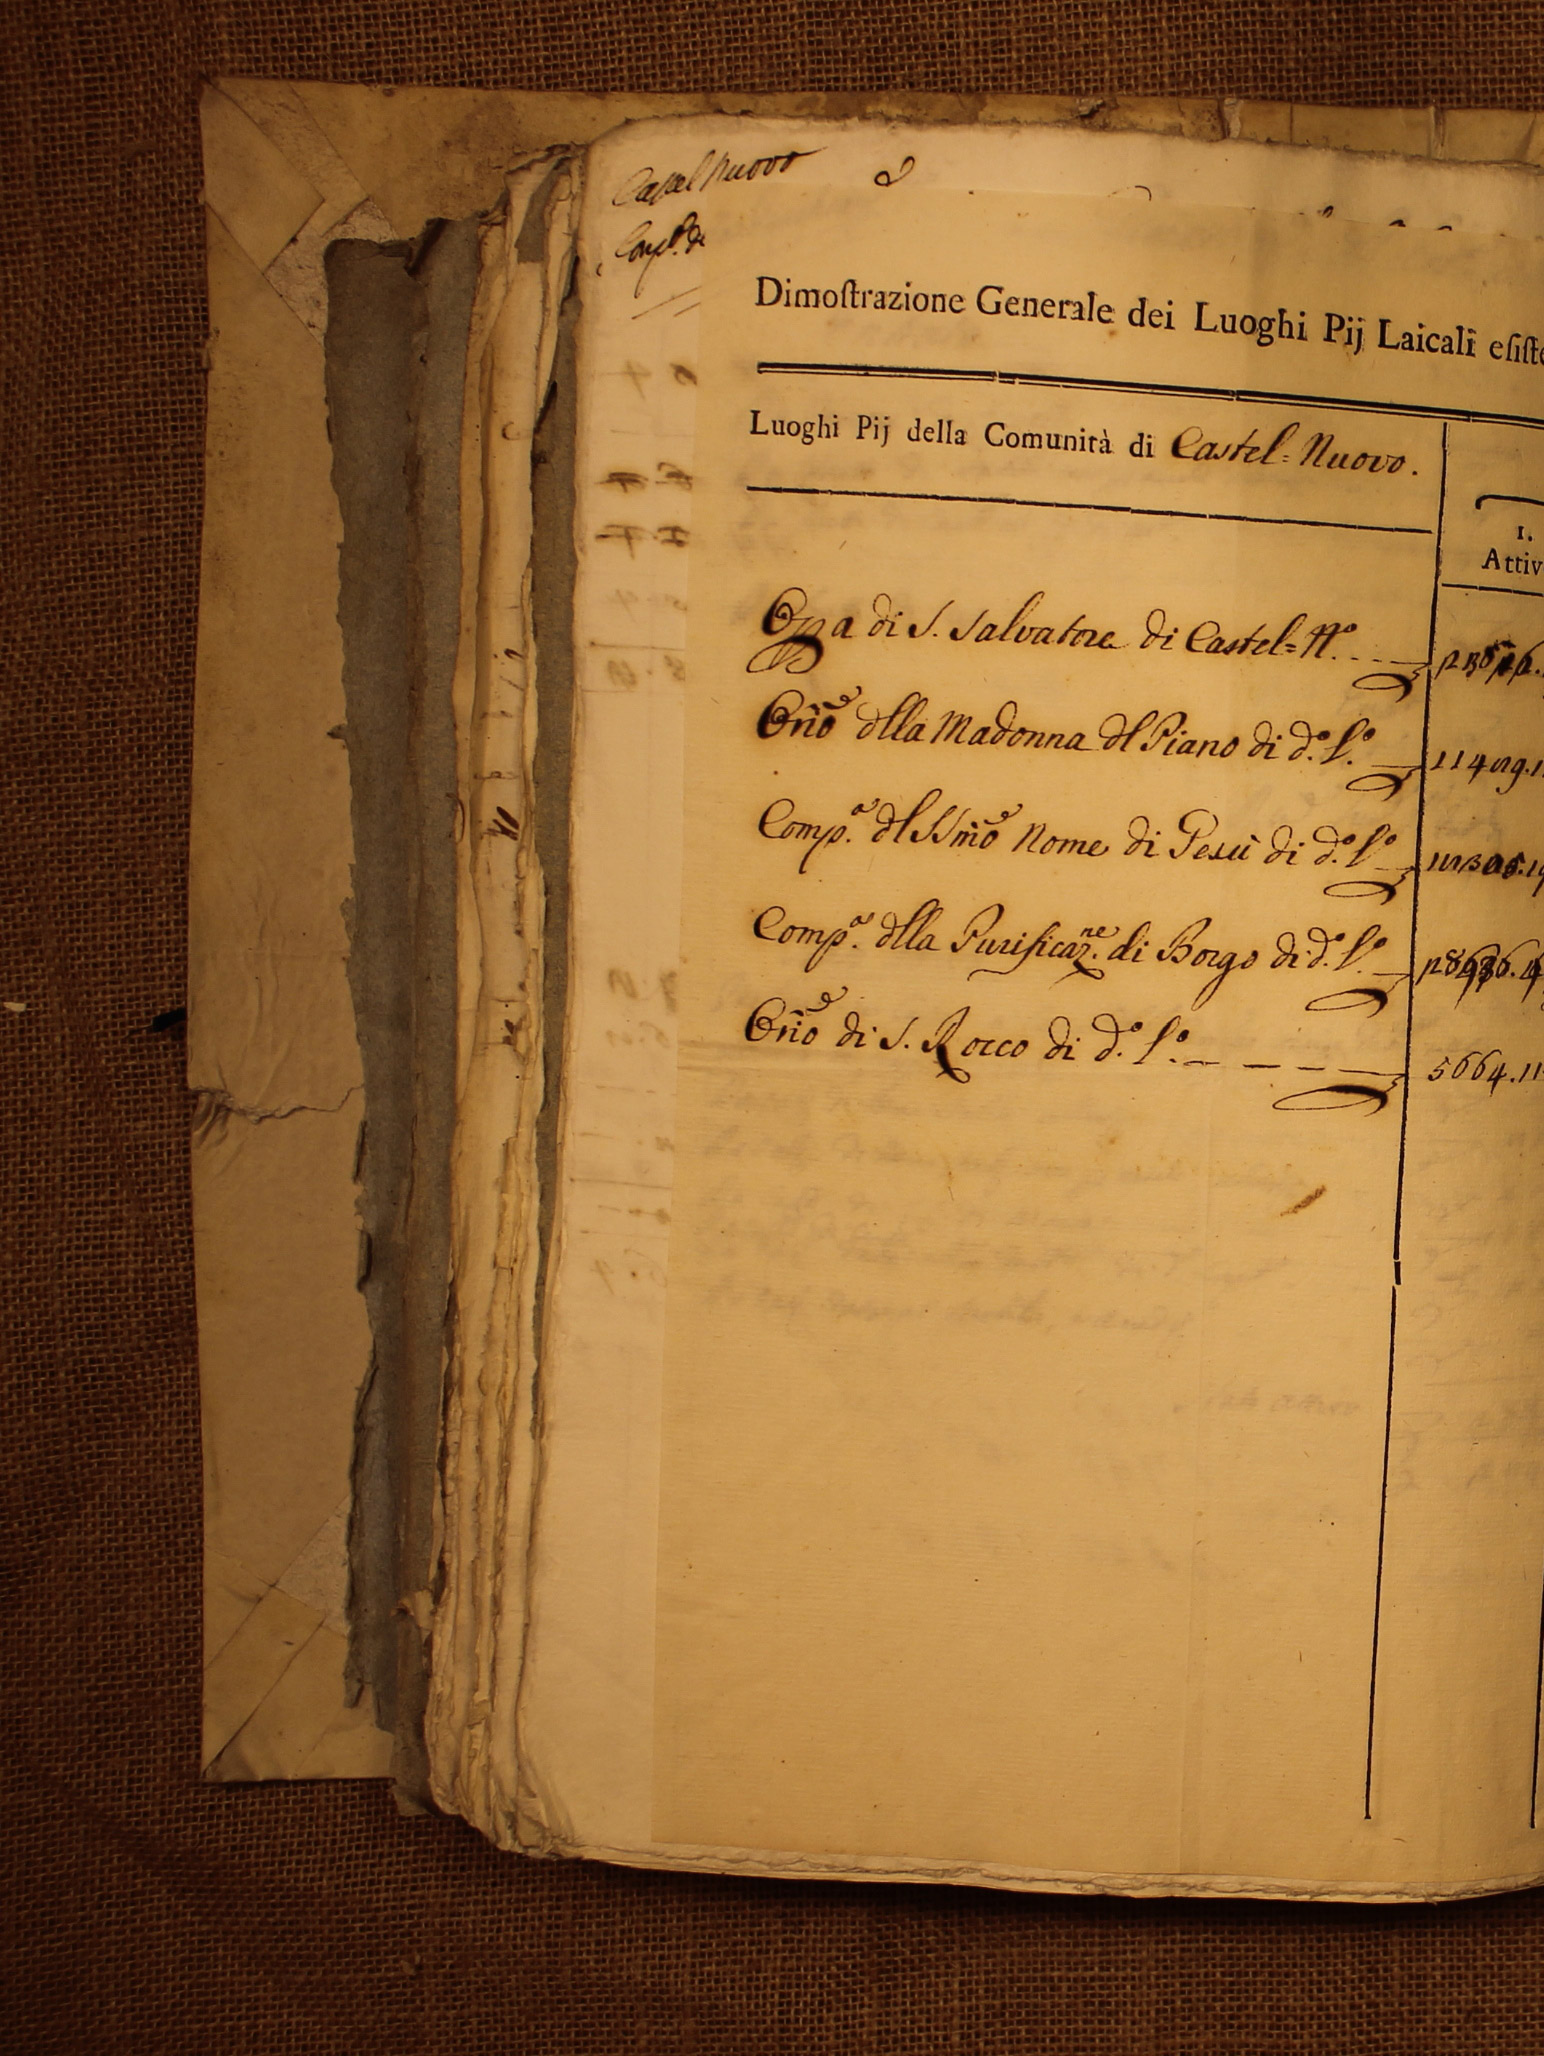 Castel Nuovo
Comp.ª di
Dimoſtrazione Generale dei Luoghi Pij Laicali eſiſte
Luoghi Pij della Comunità di Castel=Nuovo.
1.
Attiv
Opa di S. Salvatore di Castel=N.º
Orio dlla Madonna dl Piano di d.º l.º
Comp.ª dl SSmo Nome di Gesù di d.º l.º
Comp.ª dlla Purificaz.ne di Borgo di d.º l.º
Orio di S. Rocco di d.º l.º 5664.11